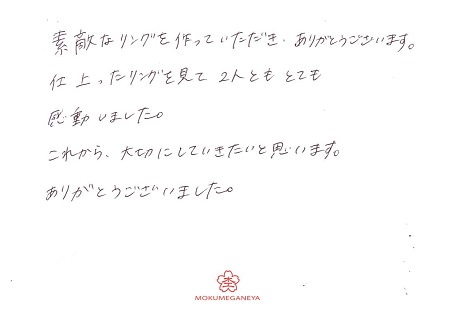 素敵なリングを作っていただき、ありがとうございます。
仕上ったリングを見て 2人とも とても
感動しました。
これから、大切にしていきたいと思います。
ありがとうございました。
MOKUMEGANEYA